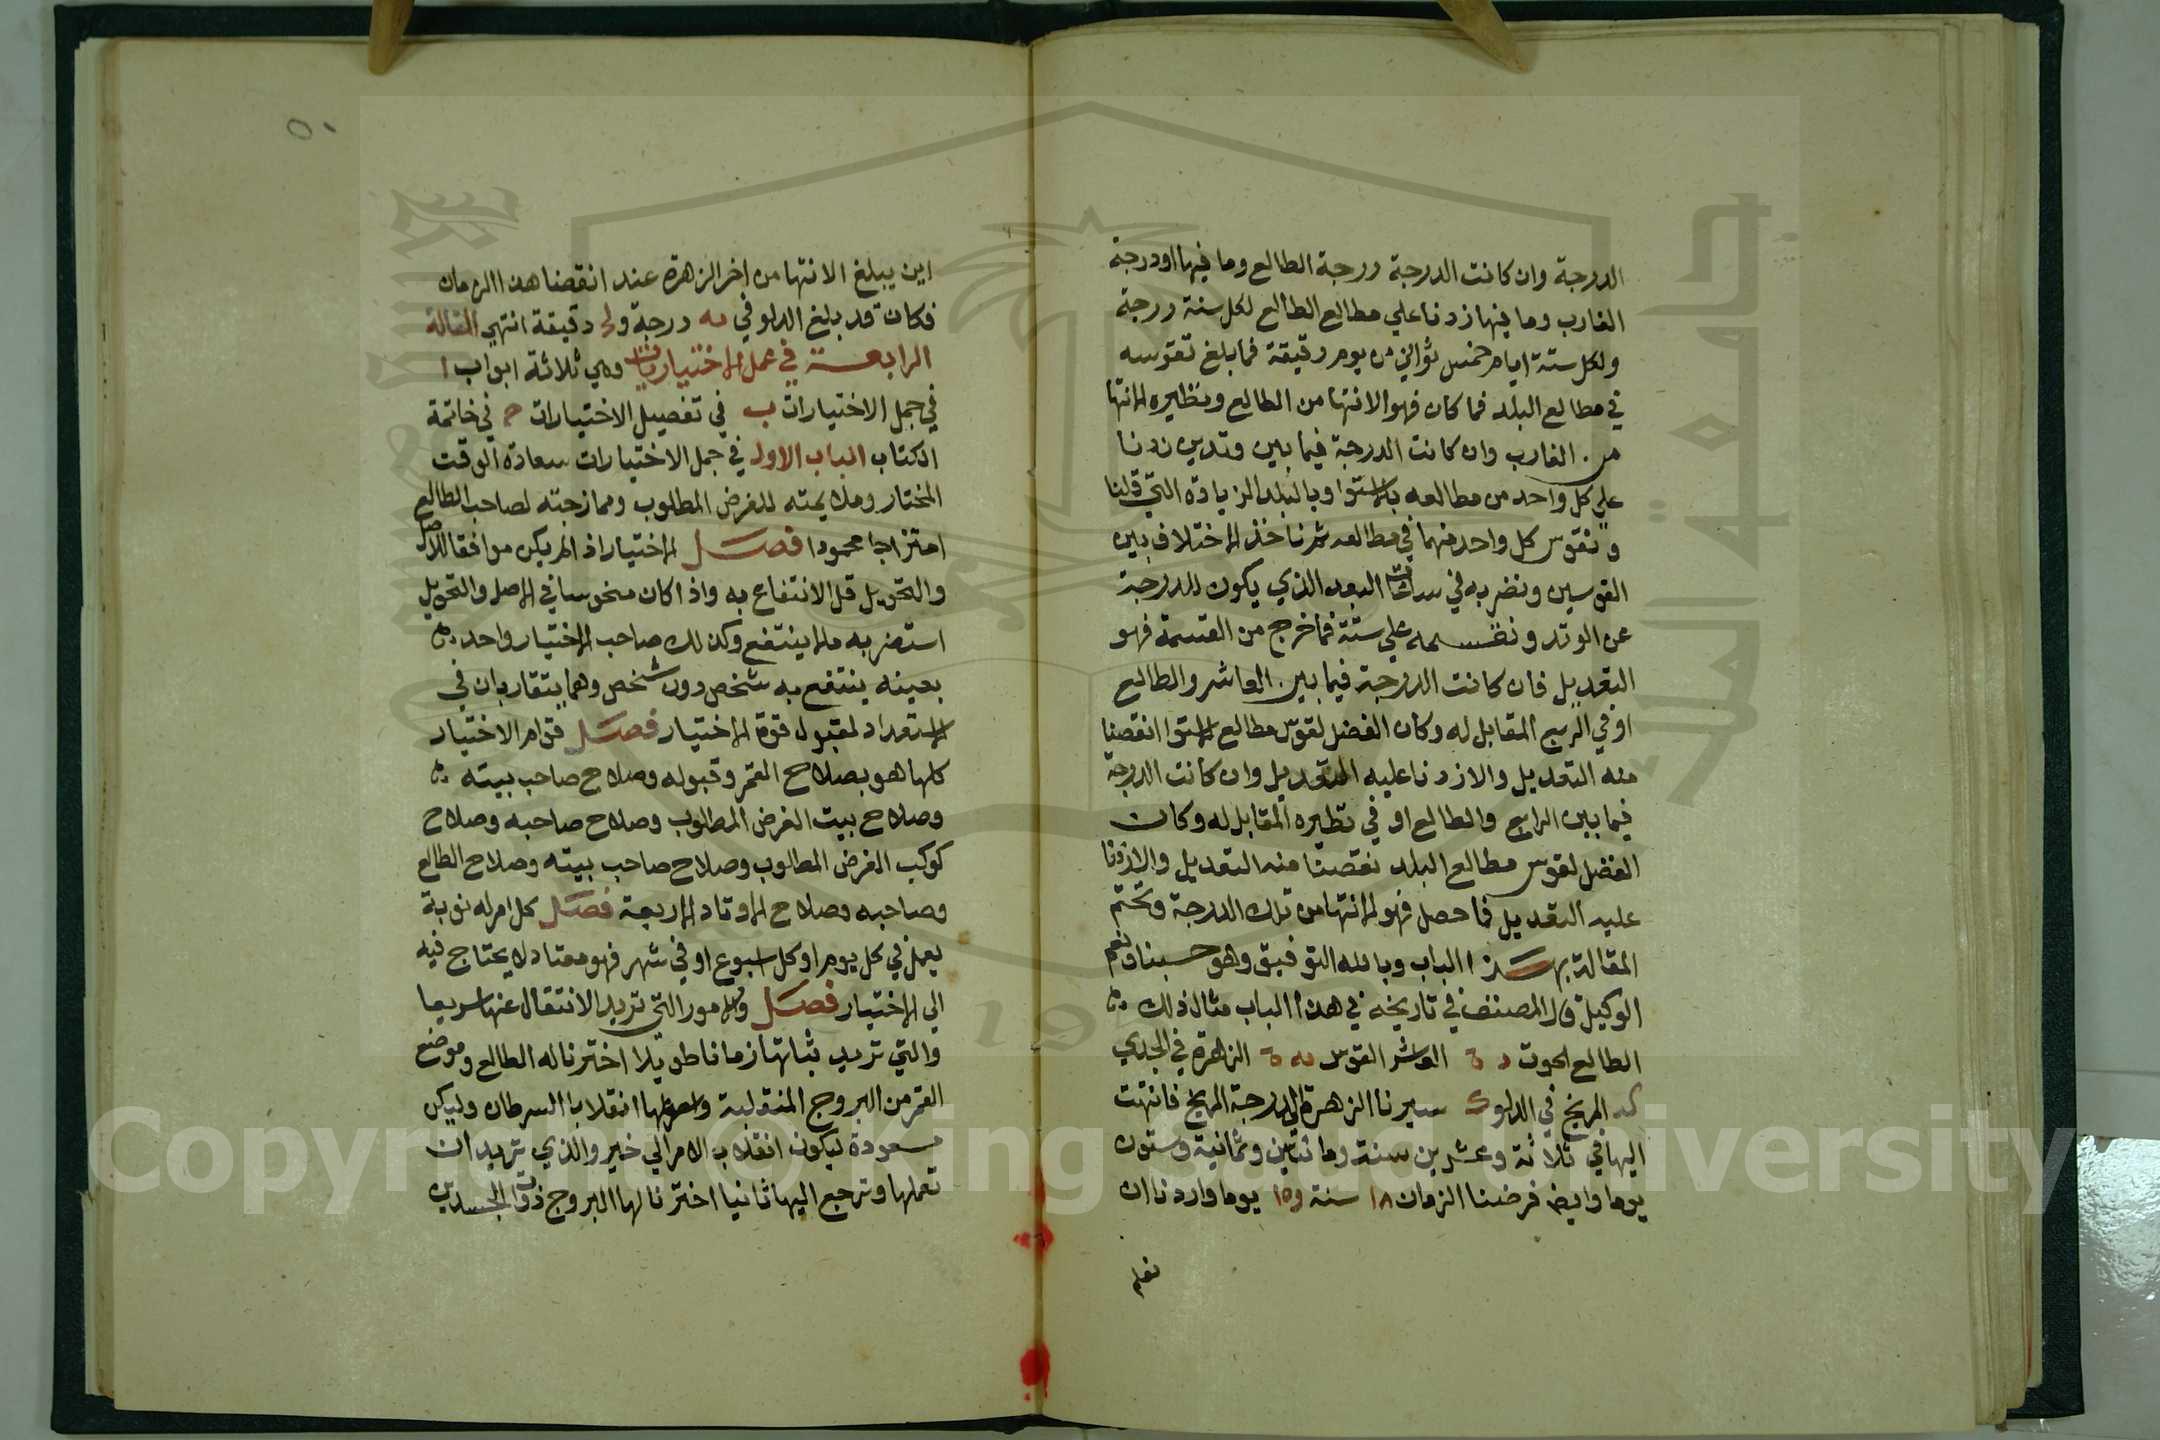 الدرجة وان كانت الدرجة درجة الطالع وما فيها اودرجة
الغارب وما فيها زدنا علي مطالع الطالع لكل سنة درجة
ولكل ستة ايام خمس ثواني من يوم دقيقة فما بلغ تقوسه
في مطالع البلد فما كان فهو الانتها من الطالع ونظيره الانتها
من الغارب وان كانت الدرجة فيما بين وتدين زدنا
علي كل واحد من مطالعه بالاستوا وبالبلد الزيادة التي قلنا
ونقوس كل واحد منهما في مطالعه ثم ناخذ الاختلاف بين
القوسين ونضربه في ساعات البعد الذي يكون للدرجة
عن الوتد ونقسمه علي ستة فما خرج من القسمة فهو
التعديل فان كانت الدرجة فيما بين العاشر والطالع
او في الربع المقابل له وكان الفضل لقوس مطالع الاستوا انقصنا
منه التعديل والا زدنا عليه التعديل وان كانت الدرجة
فيما بين الرابع والطالع او في نظيره المقابل له وكان
الفضل لقوس مطالع البلد نقصنا منه التعديل والا زدنا
عليه التعديل فما حصل فهو الانتها من تلك الدرجة ونختم
المقالة بهذا الباب وبالله التوفيق وهو حسبنا ونعم
الوكيل قال المصنف في تاريخه في هذا الباب مثال ذلك
الطالع الحوت العاشر القوس الزهرة في الجدي
كد المريخ في الدلو ك سيرنا الزهرة الي درجة المريخ فانتهت
اليها في ثلاثة وعشرين سنة ومائتين وثمانية وستون
يوما وايض فرضنا الزمان ١٨ سنة و١٥ يوما واردنا ان
نعلم
٥٠
اين يبلغ الانتها من اخر الزهرة عند انقضا هذا الزمان
فكان قد بلغ الدلو في يه درجة ول دقيقة انتهي المقالة
الرابعة في عمل الاختيارات وهي ثلاثة ابواب ا
في جمل الاختيارات ب في تفصيل الاختيارات ج في خاتمة
الكتاب الباب الاول في جمل الاختيارات سعادة الوقت
المختار وملايمته للغرض المطلوب وممازجته لصاحب الطالع
امتزاجا محمودا فصل الاختيار اذا لم يكن موافقا للاصل
والتحويل قل الانتفاع به واذا كان منحوسا في الاصل والتحويل
استضر به ولا ينتفع وكذلك صاحب الاختيار واحد
بعينه ينتفع به شخص دون شخص وهما يتقاربان في
الاستعداد لقبول قوة الاختيار فصل قوام الاختيار
كلها هو بصلاح القمر وقبوله وصلاح صاحب بيته
وصلاح بيت الغرض المطلوب وصلاح صاحبه وصلاح
كوكب الغرض المطلوب وصلاح صاحب بيته وصلاح الطالع
وصاحبه وصلاح الاوتاد الاربعة فصل كل امر له نوبة
يعمل في كل يوم او كل اسبوع او في شهر فهو معتاد لا يحتاج فيه
الي الاختيار فصل والامور التي تريد الانتقال عنها سريعا
والتي تريد ثباتها زمانا طويلا اخترنا له الطالع وموضع
القمر من البروج المنقلبة واسرعها انقلابا السرطان وليكن
مسعودة ليكون انقلاب الامر الي خير والذي تريد ان
تعملها وترجع اليها ثانيا اخترنا لها البروج ذوات الجسدين
Copyright © King Saud University